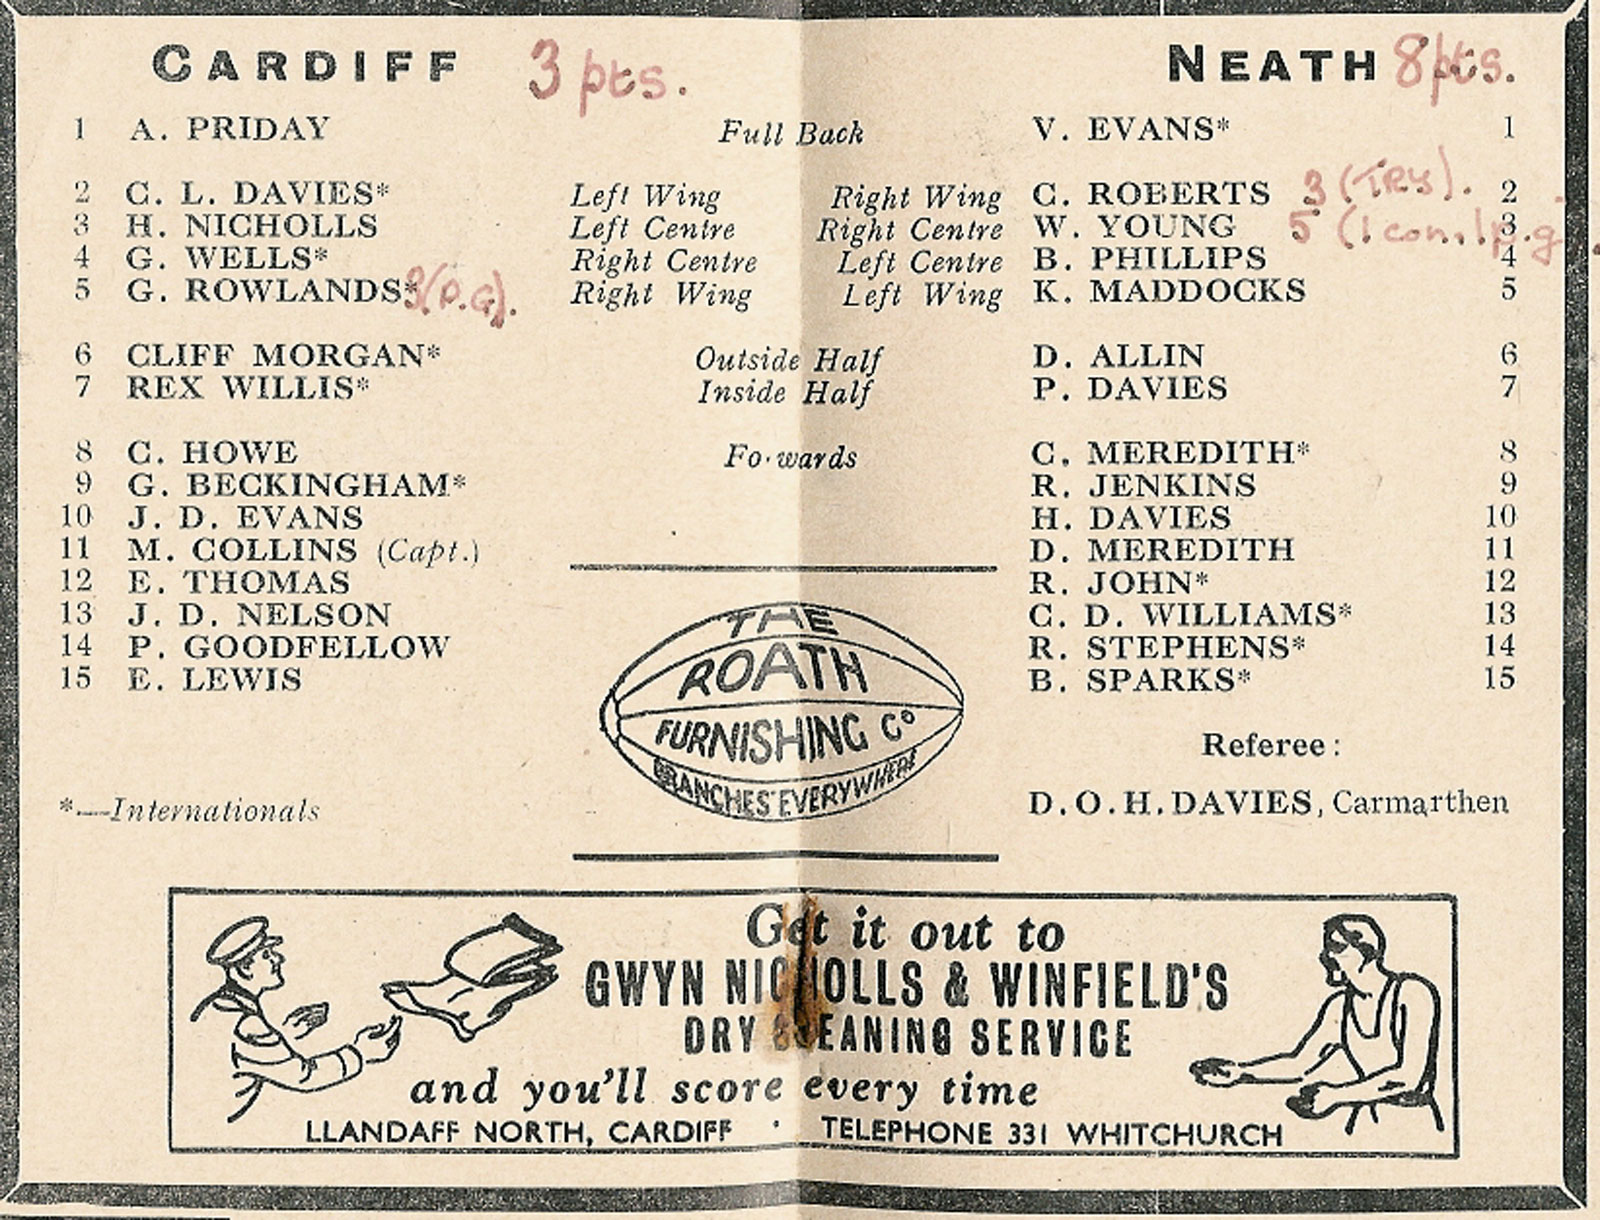 CARDIFF 3 pts. NEATH 8pts.
1 A. PRIDAY Full Back V. EVANS* 1
2 C. L. DAVIES* Left Wing Right Wing C. ROBERTS 3 (TRY). 2
3 H. NICHOLLS Left Centre Right Centre W. YOUNG 5 (1 con. 1 p.g 3
4 G. WELLS* Right Centre Left Centre B. PHILLIPS 4
5 G. ROWLANDS* 3(P.G). Right Wing Left Wing K. MADDOCKS 5
6 CLIFF MORGAN* Outside Half D. ALLIN 6
7 REX WILLIS* Inside Half P. DAVIES 7
8 C. HOWE Fo·wards C. MEREDITH* 8
9 G. BECKINGHAM* R. JENKINS 9
10 J. D. EVANS H. DAVIES 10
11 M. COLLINS (Capt.) D. MEREDITH 11
12 E. THOMAS R. JOHN* 12
13 J. D. NELSON C. D. WILLIAMS* 13
14 P. GOODFELLOW R. STEPHENS* 14
15 E. LEWIS B. SPARKS* 15
THE
ROATH
FURNISHING Co
BRANCHES EVERYWHERE
Referee:
*—Internationals D.O.H. DAVIES, Carmarthen
Get it out to
GWYN NICHOLLS & WINFIELD'S
DRY CLEANING SERVICE
and you'll score every time
LLANDAFF NORTH, CARDIFF · TELEPHONE 331 WHITCHURCH